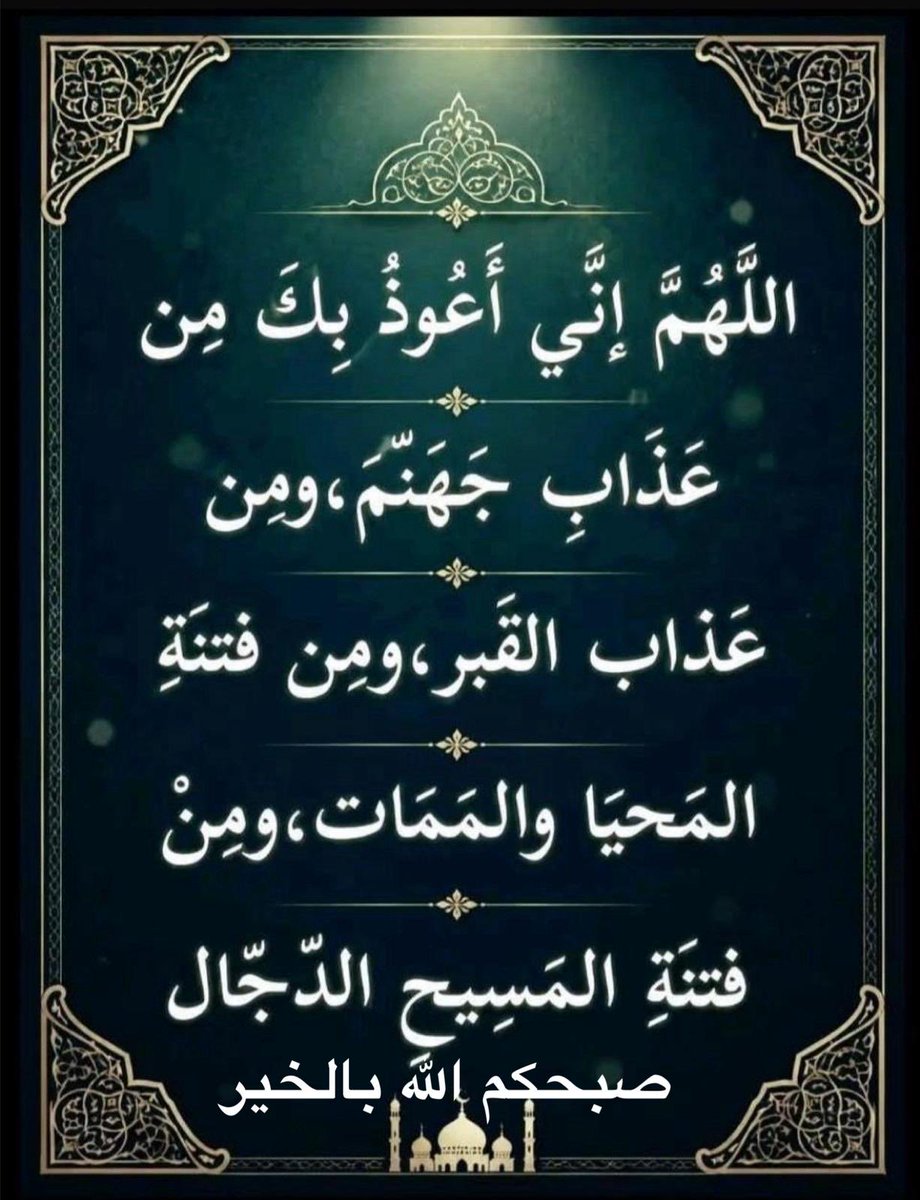 اللَّهُمَّ إنَّي أَعُوذُ بِكَ مِن
عَذَابِ جَهَنّمَ،ومِن
عَذاب القَبر،ومِن فتنَةِ
المَحيَا والمَمَات،ومِنْ
فتنَةِ المَسِيحِ الدّجّال
صبحكم الله بالخير